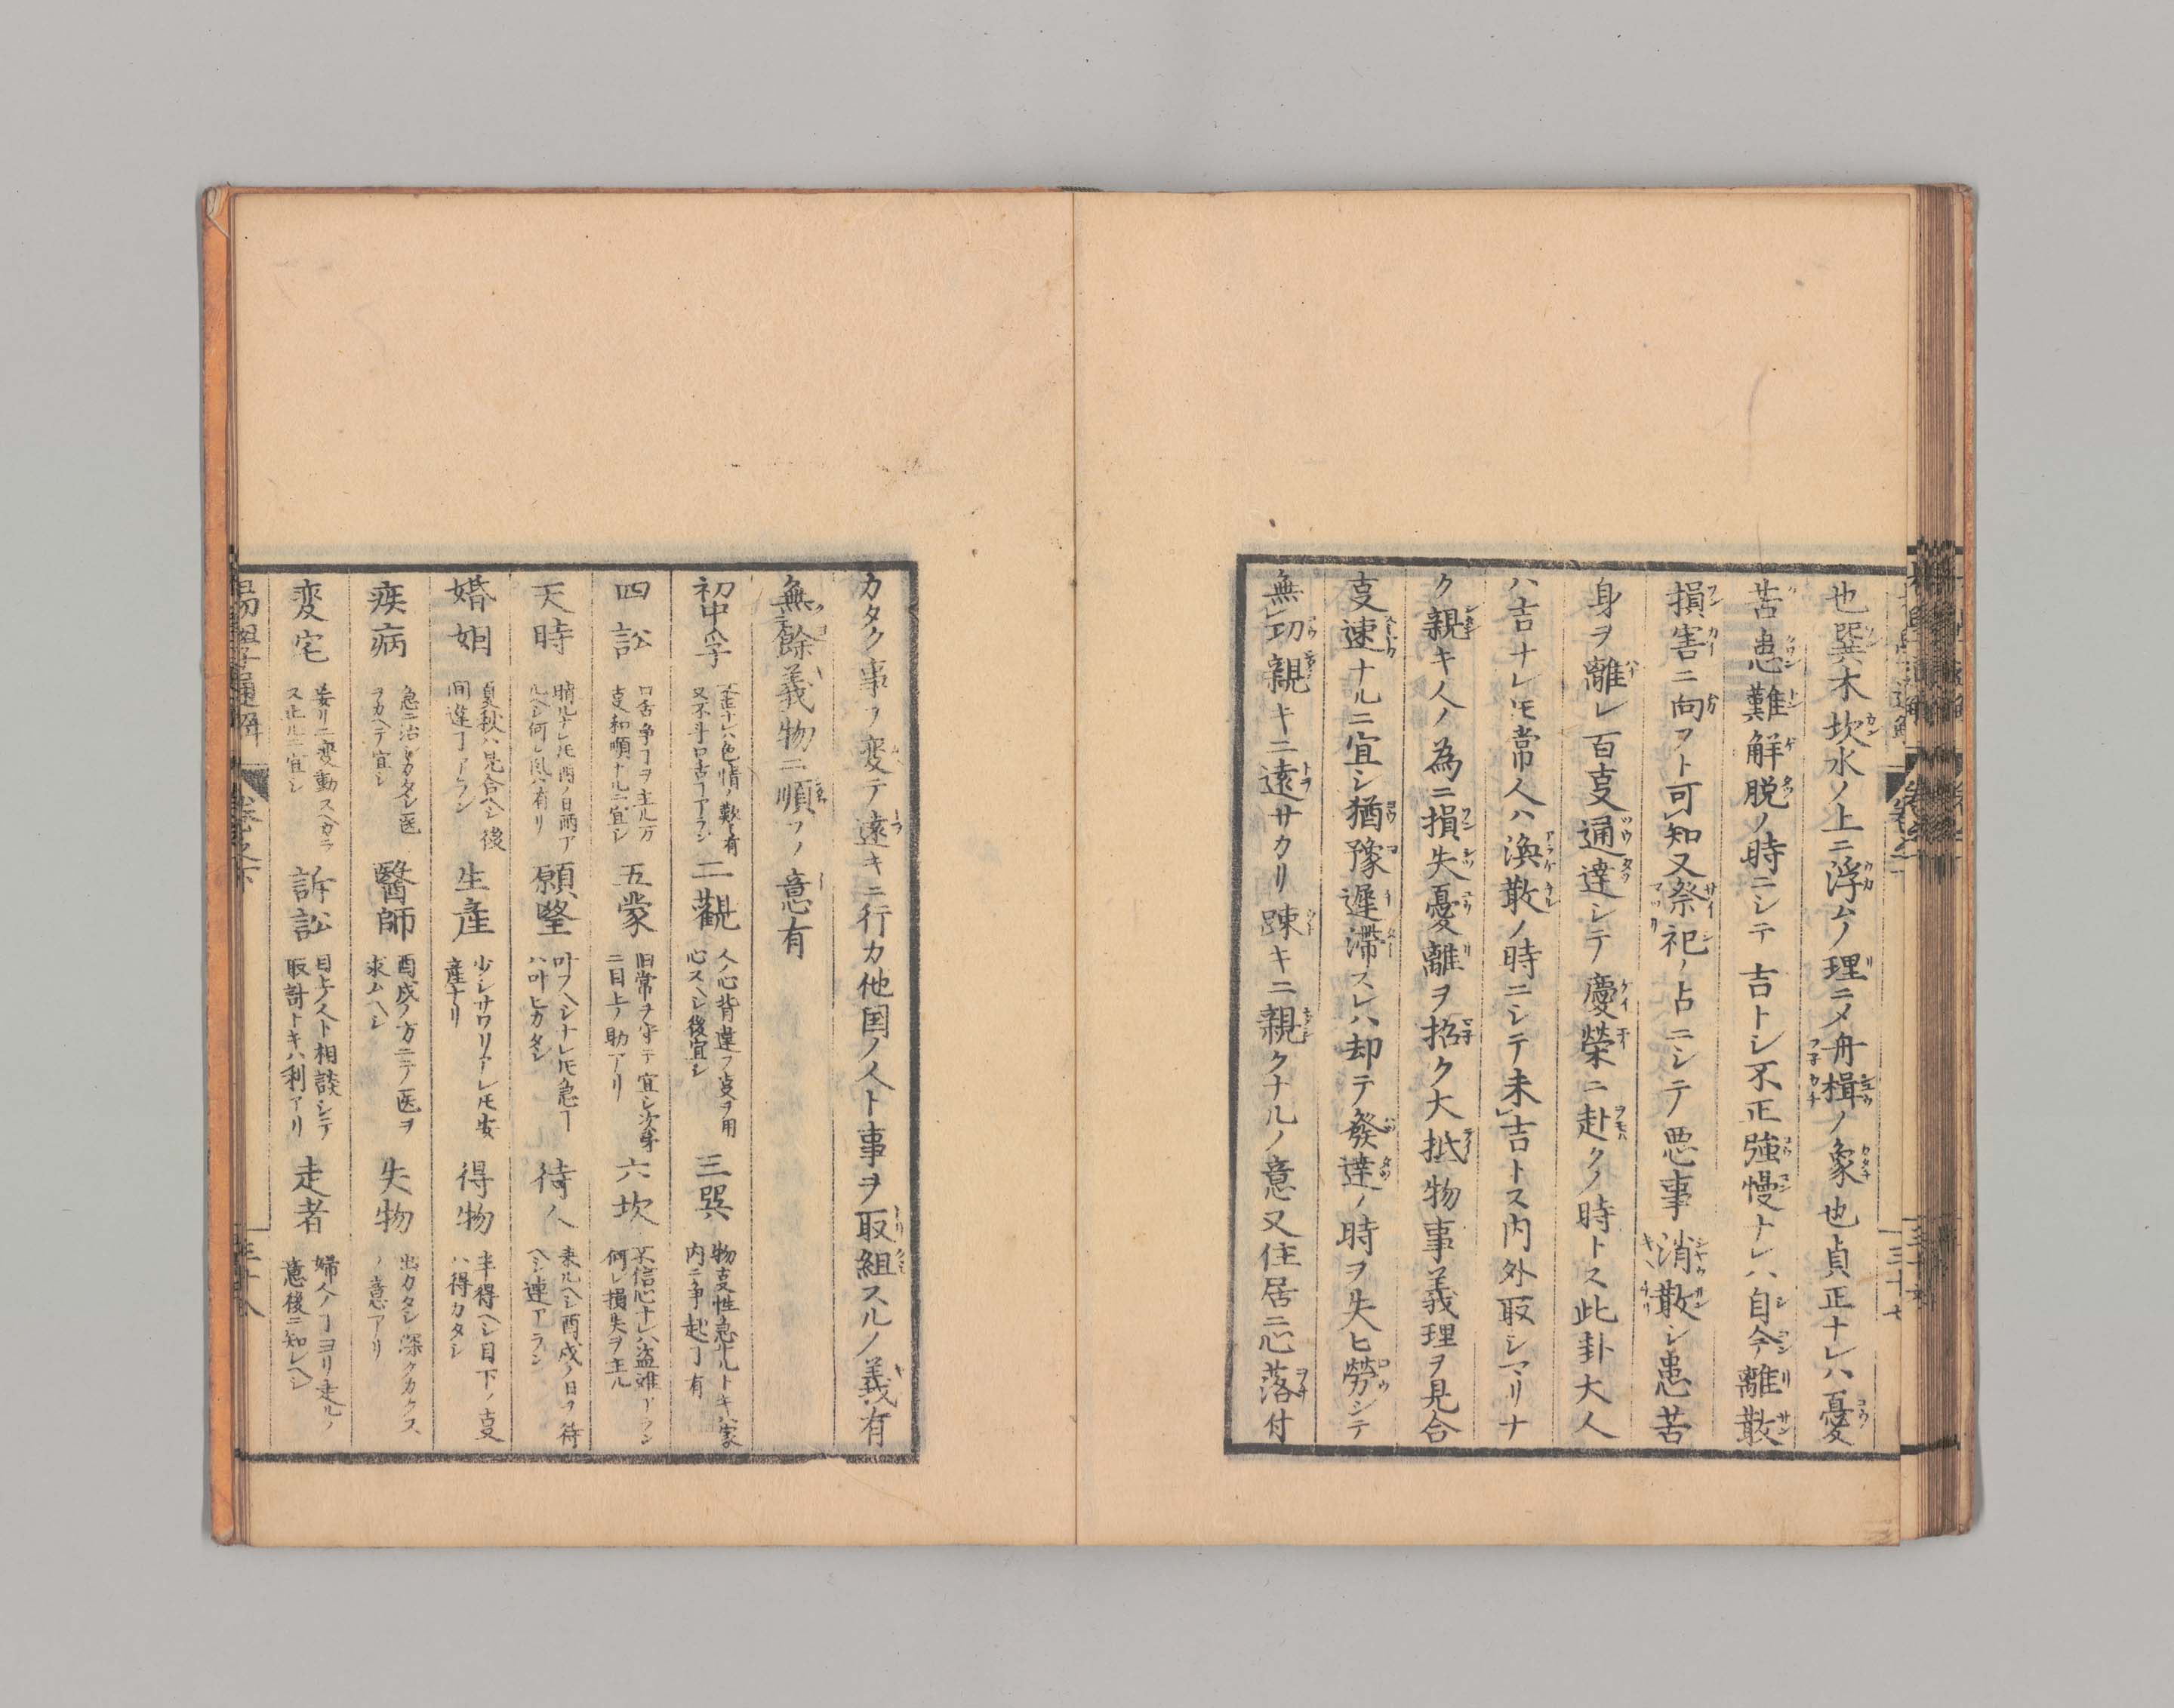 也巽木坎水ノ上ニ浮ムノ理ニメ舟楫ノ象也貞正ナレハ憂
苦患難解脱ノ時ニシテ吉トシ不正強慢ナレハ自今離散
損害ニ向フト可知又祭祀ノ占ニシテ悪事消散シ患苦
身ヲ離レ百叓通達シテ慶榮ニ赴クノ時トス此卦大人
ハ吉ナレ𪜈常人ハ渙散ノ時ニシテ未吉トス内外取シマリナ
ク親キ人ノ為ニ損失憂離ヲ招ク大抵物事義理ヲ見合
叓速ナルニ宜シ猶豫遲滞スレハ却テ發達ノ時ヲ失ヒ勞シテ
無功親キニ遠サカリ疎キニ親クナルノ意又住居ニ心落付
三十七
カタク事ヲ変テ遠キニ行カ他国ノ人ト事ヲ取組スルノ義有
無餘義物ニ順フノ意有
初中孚 正ナレハ色情ノ歎有又不斗口舌ヿアラン 二觀 人ノ心背違フ叓ヲ用心スヘシ後宜シ 三巽 物叓性急ナルトキハ家内ニ争起ヿ有
四訟 口舌争ヿヲ主ル万叓和順ナルニ宜シ 五蒙 旧常ヲ守テ宜シ次第ニ目上ノ助アリ 六坎 不信心ナレハ盗難アラン何レ損失ヲ主ル
天時 晴ルナレ𪜈酉ノ日雨アルヘシ何レ風ハ有リ 願望 叶フヘシナレ𪜈急ヿハ叶ヒカタシ 待人 来ルヘシ酉戌ノ日ヲ待ヘシ連アラン
婚姻 夏秋ハ見合ヘシ後間違ヿアラン 生産 少シサワリアレ𪜈安産ナリ 得物 半得ヘシ目下ノ叓ハ得カタシ
疾病 急ニ治シカタシ医ヲカヘテ宜シ 醫師 酉戌ノ方ニテノ医ヲ求ムヘシ 失物 出カタシ深クカクスノ意アリ
変宅 妄リニ変動スヘカラス止ルニ宜シ 訴訟 目上ノ人ト相談シテ取計トキハ利アリ 走者 婦人ノヿヨリ走ルノ意後ニ知レヘシ